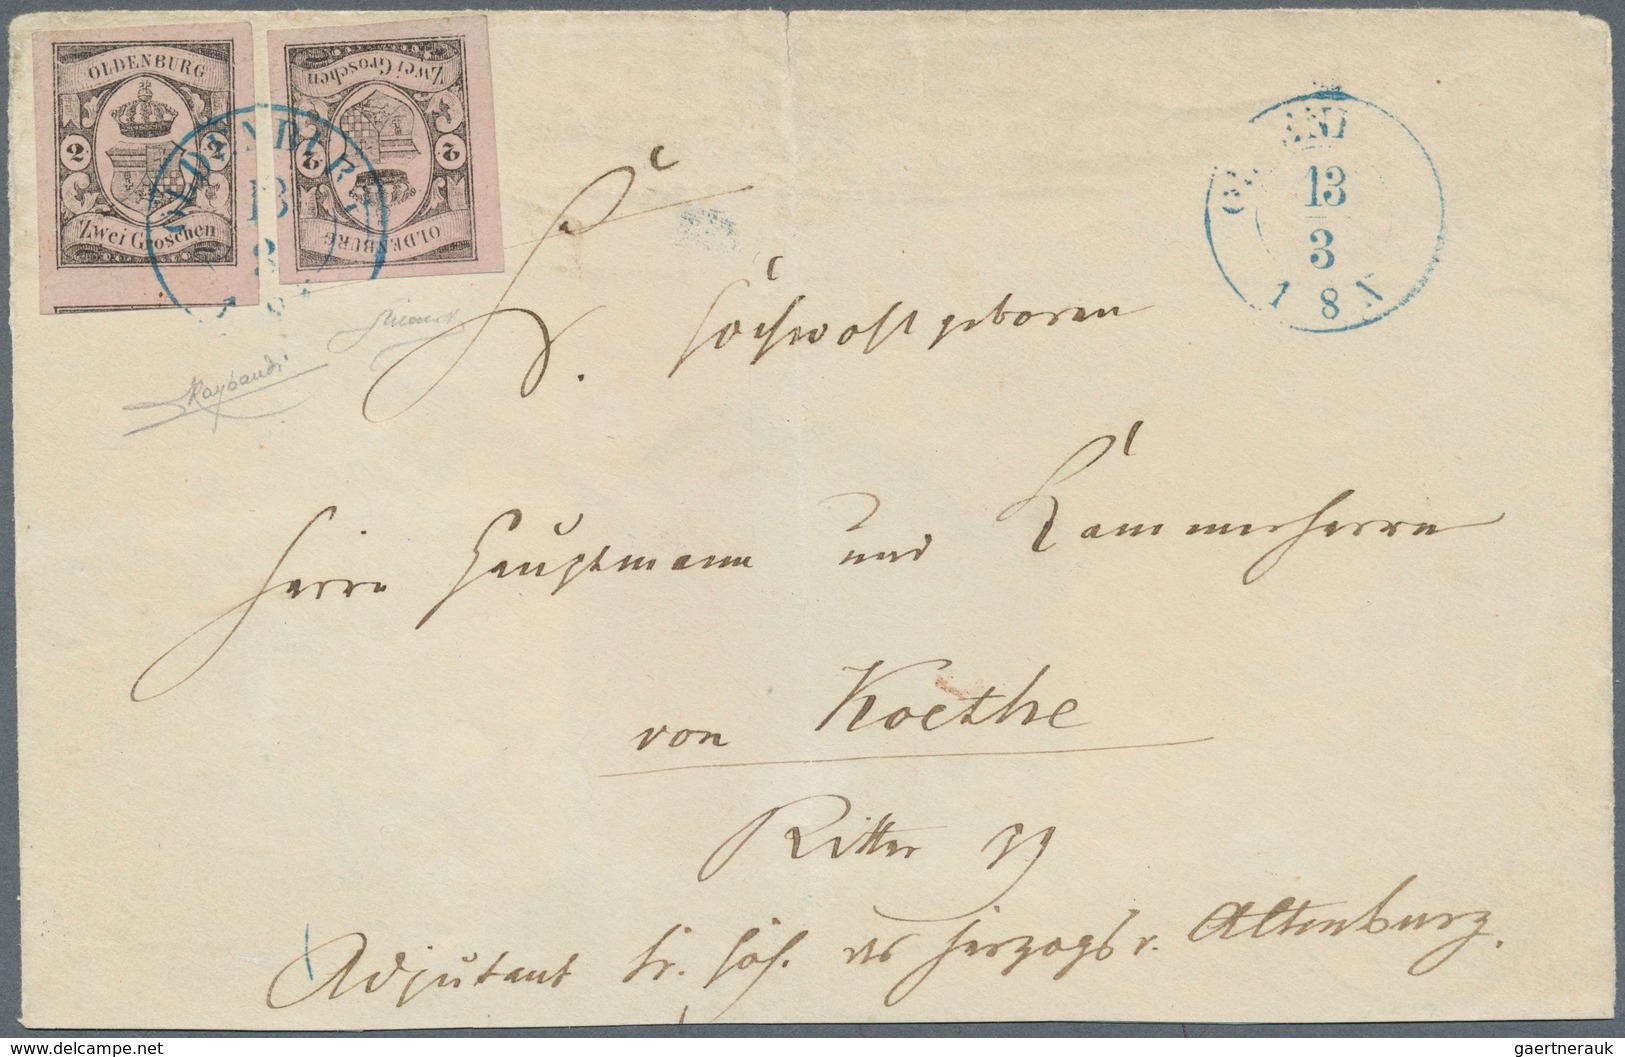 OLDENBURG
2 2
Zwei Groschen
Zwei Groschen
2 2
OLDENBURG
OLDENBURG
13
13
3
1 8
Raybaudi
Sr
Hochwohlgeboren
Herrn Hauptmann und Kammerherrn
von Koethe
Ritter pp
Adjutant Sr. Hoh. des Herzogs v. Altenburg.
www.delcampe.net
gaertnerauk